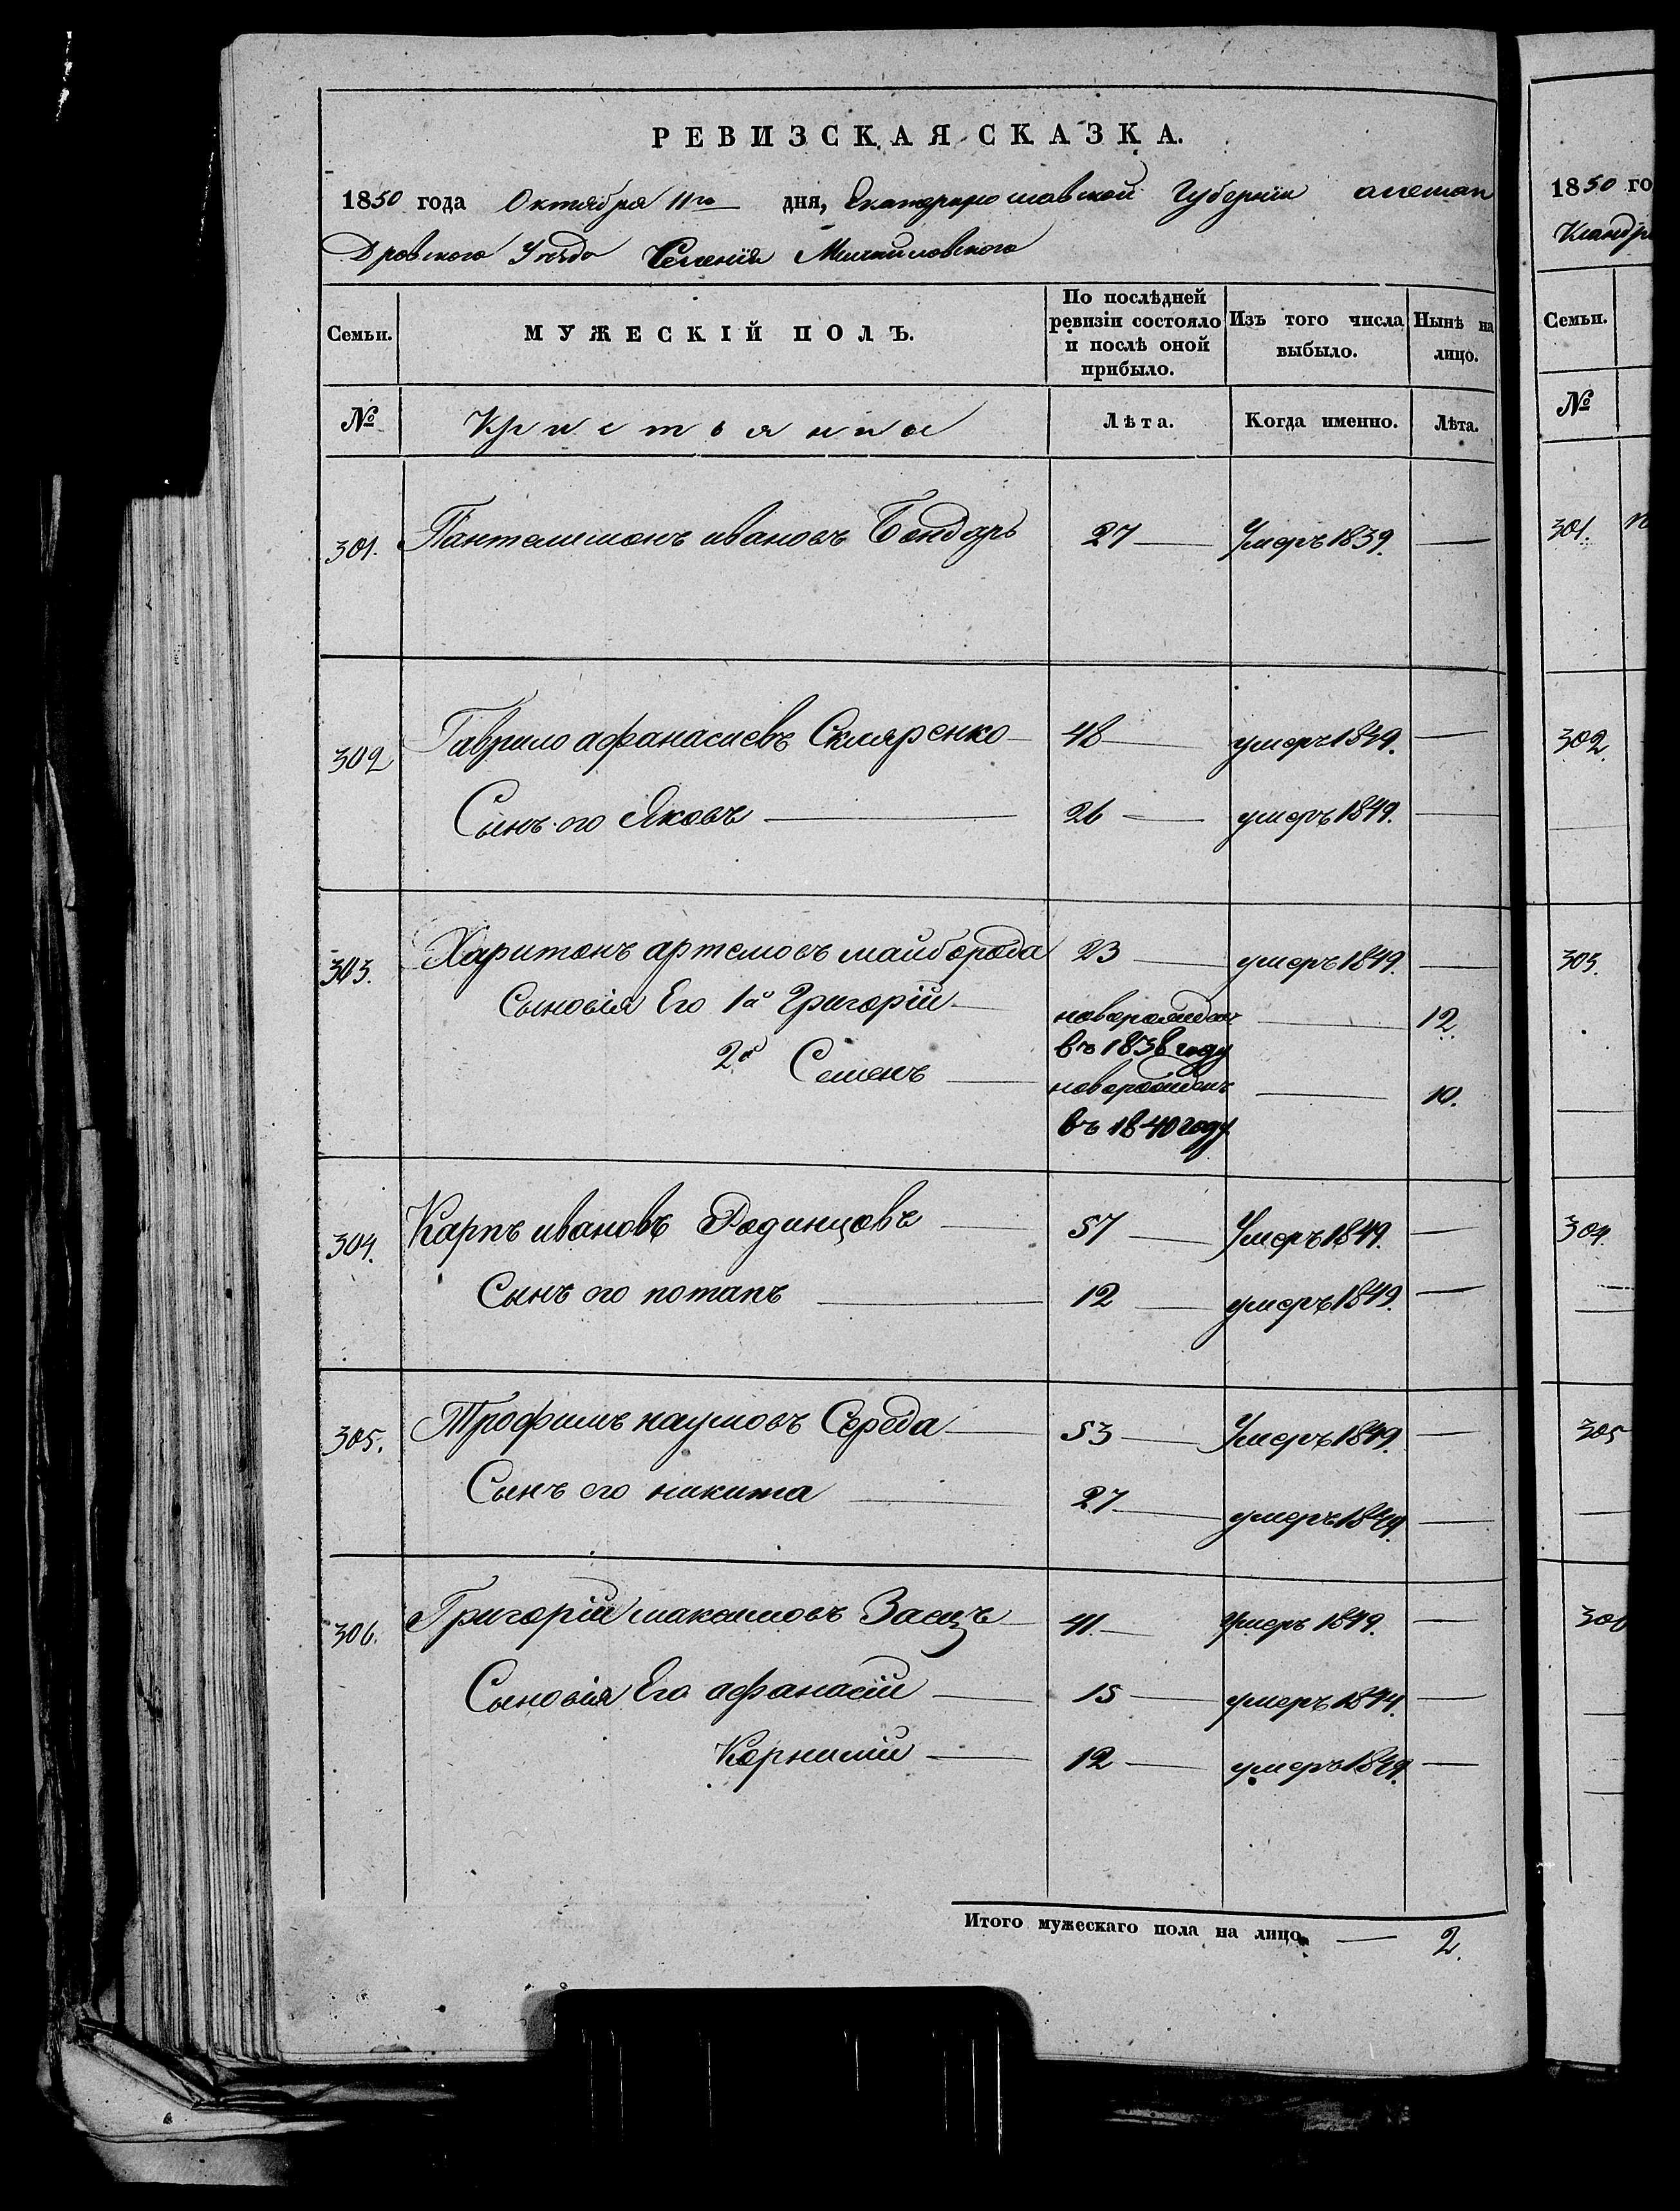 РЕВИЗСКАЯ СКАЗКА.
1850 года Октября 11го дня, Екатеринославской Губерніи алексан
дровского Уезда Селенія
Семьи. МУЖЕСКІЙ ПОЛЪ. По послѣдней ревизіи состояло и послѣ оной прибыло. Изъ того числа выбыло. Нынѣ на лицо.
№ Лѣта. Когда именно. Лѣта.
301. Пантелимонъ ивановъ Бондарь 27 Умеръ 1839.
302 Гаврило афанасиевъ Скляренко 48 умеръ 1849.
Сынъ его Яковъ 26 умеръ 1849.
303. Харитонъ артемовъ майборода 23 умеръ 1849.
Сыновія Его 1й Григорій новорожден 12.
въ 1838 году
2й Семенъ новорожденъ 10.
въ 1840 году
304. Карпъ ивановъ Родинцовъ 57 Умеръ 1849.
Сынъ его потапъ 12 умеръ 1849.
305. Трофимъ наумовъ Середа 53 Умеръ 1849.
Сынъ его никита 27 умеръ 1849
306. Григорій максимовъ Заецъ 41 Умеръ 1849.
Сыновія Его афанасій 15 умеръ 1844.
Корнилій 12 умеръ 1849.
Итого мужескаго пола на лицо 2.
1850 го
Семьи.
№
301.
302.
303.
304.
305
306